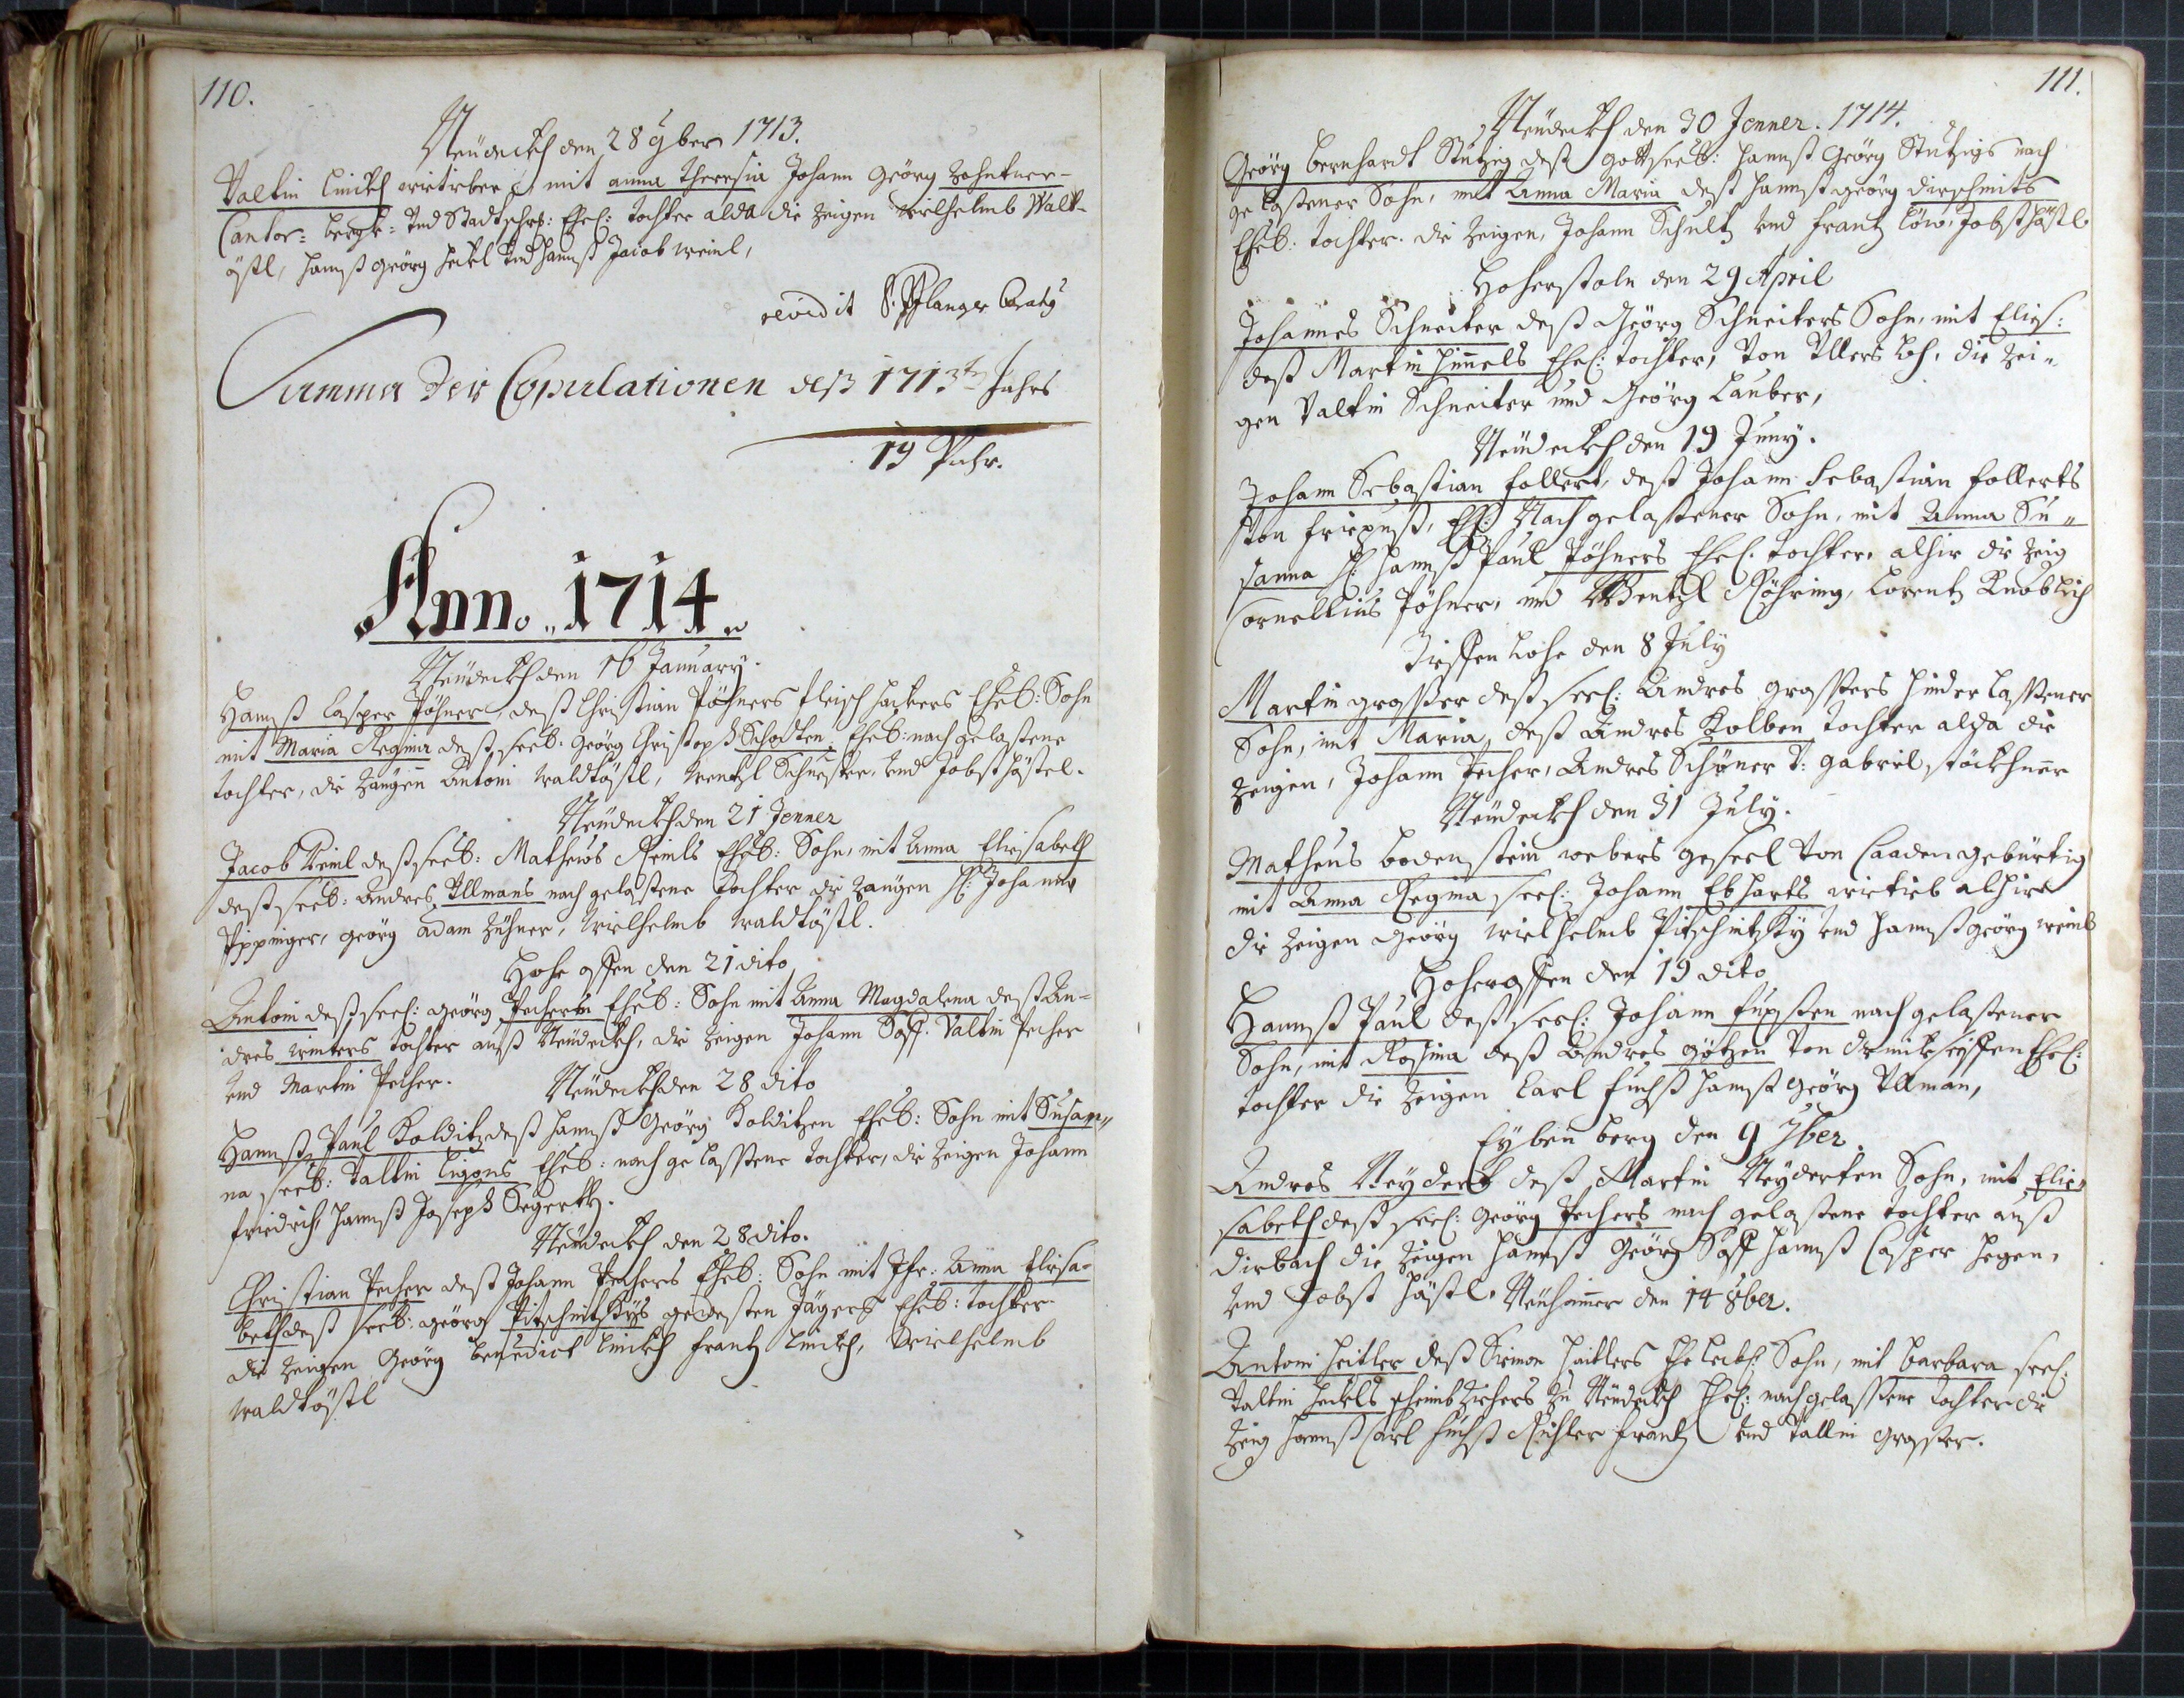 110.
Neüdeckh den 28 9ber 1713.
Valtin Linckh wietiber mit anna Theresia Johann Geörg Zehntner-
Cantor: bergk: Vnd Stadtschrb: Ehel: tochter alda die Zeigen Wielhelmb Walt-
östl, Hannß Geörg Heckl Vnd Hannß Jacob weinl,
revidit P. Pflanger
Summa Der Copulationen deß 1713ten Jahrs
19 Pahr.
Ann. 1714.
Neüdeckh den 16 January.
Hannß Casper Pöhner, deß Christian Pöhners fleisch hackers Eheb: Sohn
mit Maria Regina deß seeb: Geörg Christoph Schotten, Eheb: nach gelaßene
tochter, die Zäugen Antoni Waldtöstl, Wentzl Schuster, Vnd Jobst Hästel.
Neüdeckh den 21 Jenner
Jacob Reinl deß seeb: Matheüs Reinls Eheb: Sohn, mit Anna Eliesabeth
deß seeb: Andres Ullmans nach gelaßene Tochter die Zaügen H: Johann
Ippinger, Geörg adam Zühner, Wielhelmb Waldtöstl.
Hohe ofen den 21 dito
Antoni deß seel: Geörg Pechers Eheb: Sohn mit Anna Magdalena deß An-
dres winters tochter auß Neüdeckh, die Zeigen Johann Voß. Valtin Pecher
Vnd Martin Pecher.
Neüdeckh den 28 dito
Hannß Paul Kolditz deß Hannß Geörg Kolditzen Eheb: Sohn mit Susan-
na seeb: Valtin Ligons Eheb: nach gelaßene tochter, die Zeigen Johann
friedrich, Hannß Joseph Segertth.
Neüdeckh den 28 dito.
Christian Pecher deß Johann Pechers Eheb: Sohn mit Jfr: Anna Elisa-
beth deß seeb: Geörg Pitschnitzkÿs gewesten Jägers Eheb: tochter
die Zeigen Geörg benedict Linckh frantz Linckh, Wielhelmb
Waldtöstl
111.
Neüdeckh den 30 Jenner. 1714.
Geörg bernhardt Stützig deß Gottseelb: Hannß Geörg Stützigs nach
gelaßener Sohn, mit Anna Maria deß Hannß geörg dirschmits
Eheb: tochter. die Zeigen, Johann Schultz vnd frantz löw, Jobst Hästl
Hoherstoln den 29 April
Johannes Schneiter deß Geörg Schneiters Sohn, mit Elies:
deß Martin Himels Ehel: tochter, Von Ullersloh, die Zei-
gen Valtin Schneiter und Geörg Lauber,
Neüdeckh den 19 Juny.
Johann Sebastian follert, deß Johann Sebastian follerts
Von friepuß, Eh: Nach gelaßener Sohn, mit Anna Su-
sanna H: Hannß Paul Pöhners Ehel. tochter alhir die Zeig
Cornellius Pöhner, vnd Wentzl Röhring, Lorentz Knoblich
Tieffen Lohe den 8 July
Martin großer deß seel: Andres großers hinder laßener
Sohn, mit Maria, deß Andres Kolben tochter alda die
Zeigen, Johann Pecher, Andres Schöner V: gabriel stöckhner
Neüdeckh den 31 July.
Matheus bodenstein webers gesel Von Caaden gebürtig
mit Anna Regina seel: Johann Ebharts wietieb alhire
die Zeigen Geörg wielhelmb Pitschnitzkÿ Vnd Hannß geörg weinl
Hoherofen den 19 dito
Hannß Paul deß seel: Johann fuxßen nach gelaßener
Sohn, mit Rosina deß Andres götzen Von Ehel:
tochter die Zeigen Carl fuchß Hannß Geörg Ullman,
Eyben berg den 9 7ber.
Andres Neydert deß Martin Neyderten Sohn, mit Elie-
sabeth deß seel: Geörg Pechers nach gelaßene tochter auß
dirbach die Zeigen Hannß Geörg Voß Hannß Casper hegen,
Vnd Jobst Hästl. Neühamer den 14 8ber.
Antoni Heitler deß Siemon Haitlers Ehe leibl: Sohn, mit barbara seel:
Valtin Heckls Zu Neüdeckh Ehel: nachgelaßene tochter die
Zeig Hannß Carl fuchß Richter frantz Vnd Valtin großer.